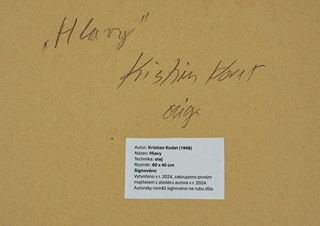 „Hlavy"
Kristian Kodet
orig.
Autor: Kristian Kodet (1948)
Název: Hlavy
Technika: olej
Rozměr: 60 x 40 cm
Signováno
Vytvořeno v r. 2024, zakoupeno prvním
majitelem z ateliéru autora v r. 2024.
Autorsky rovněž signováno na rubu díla.